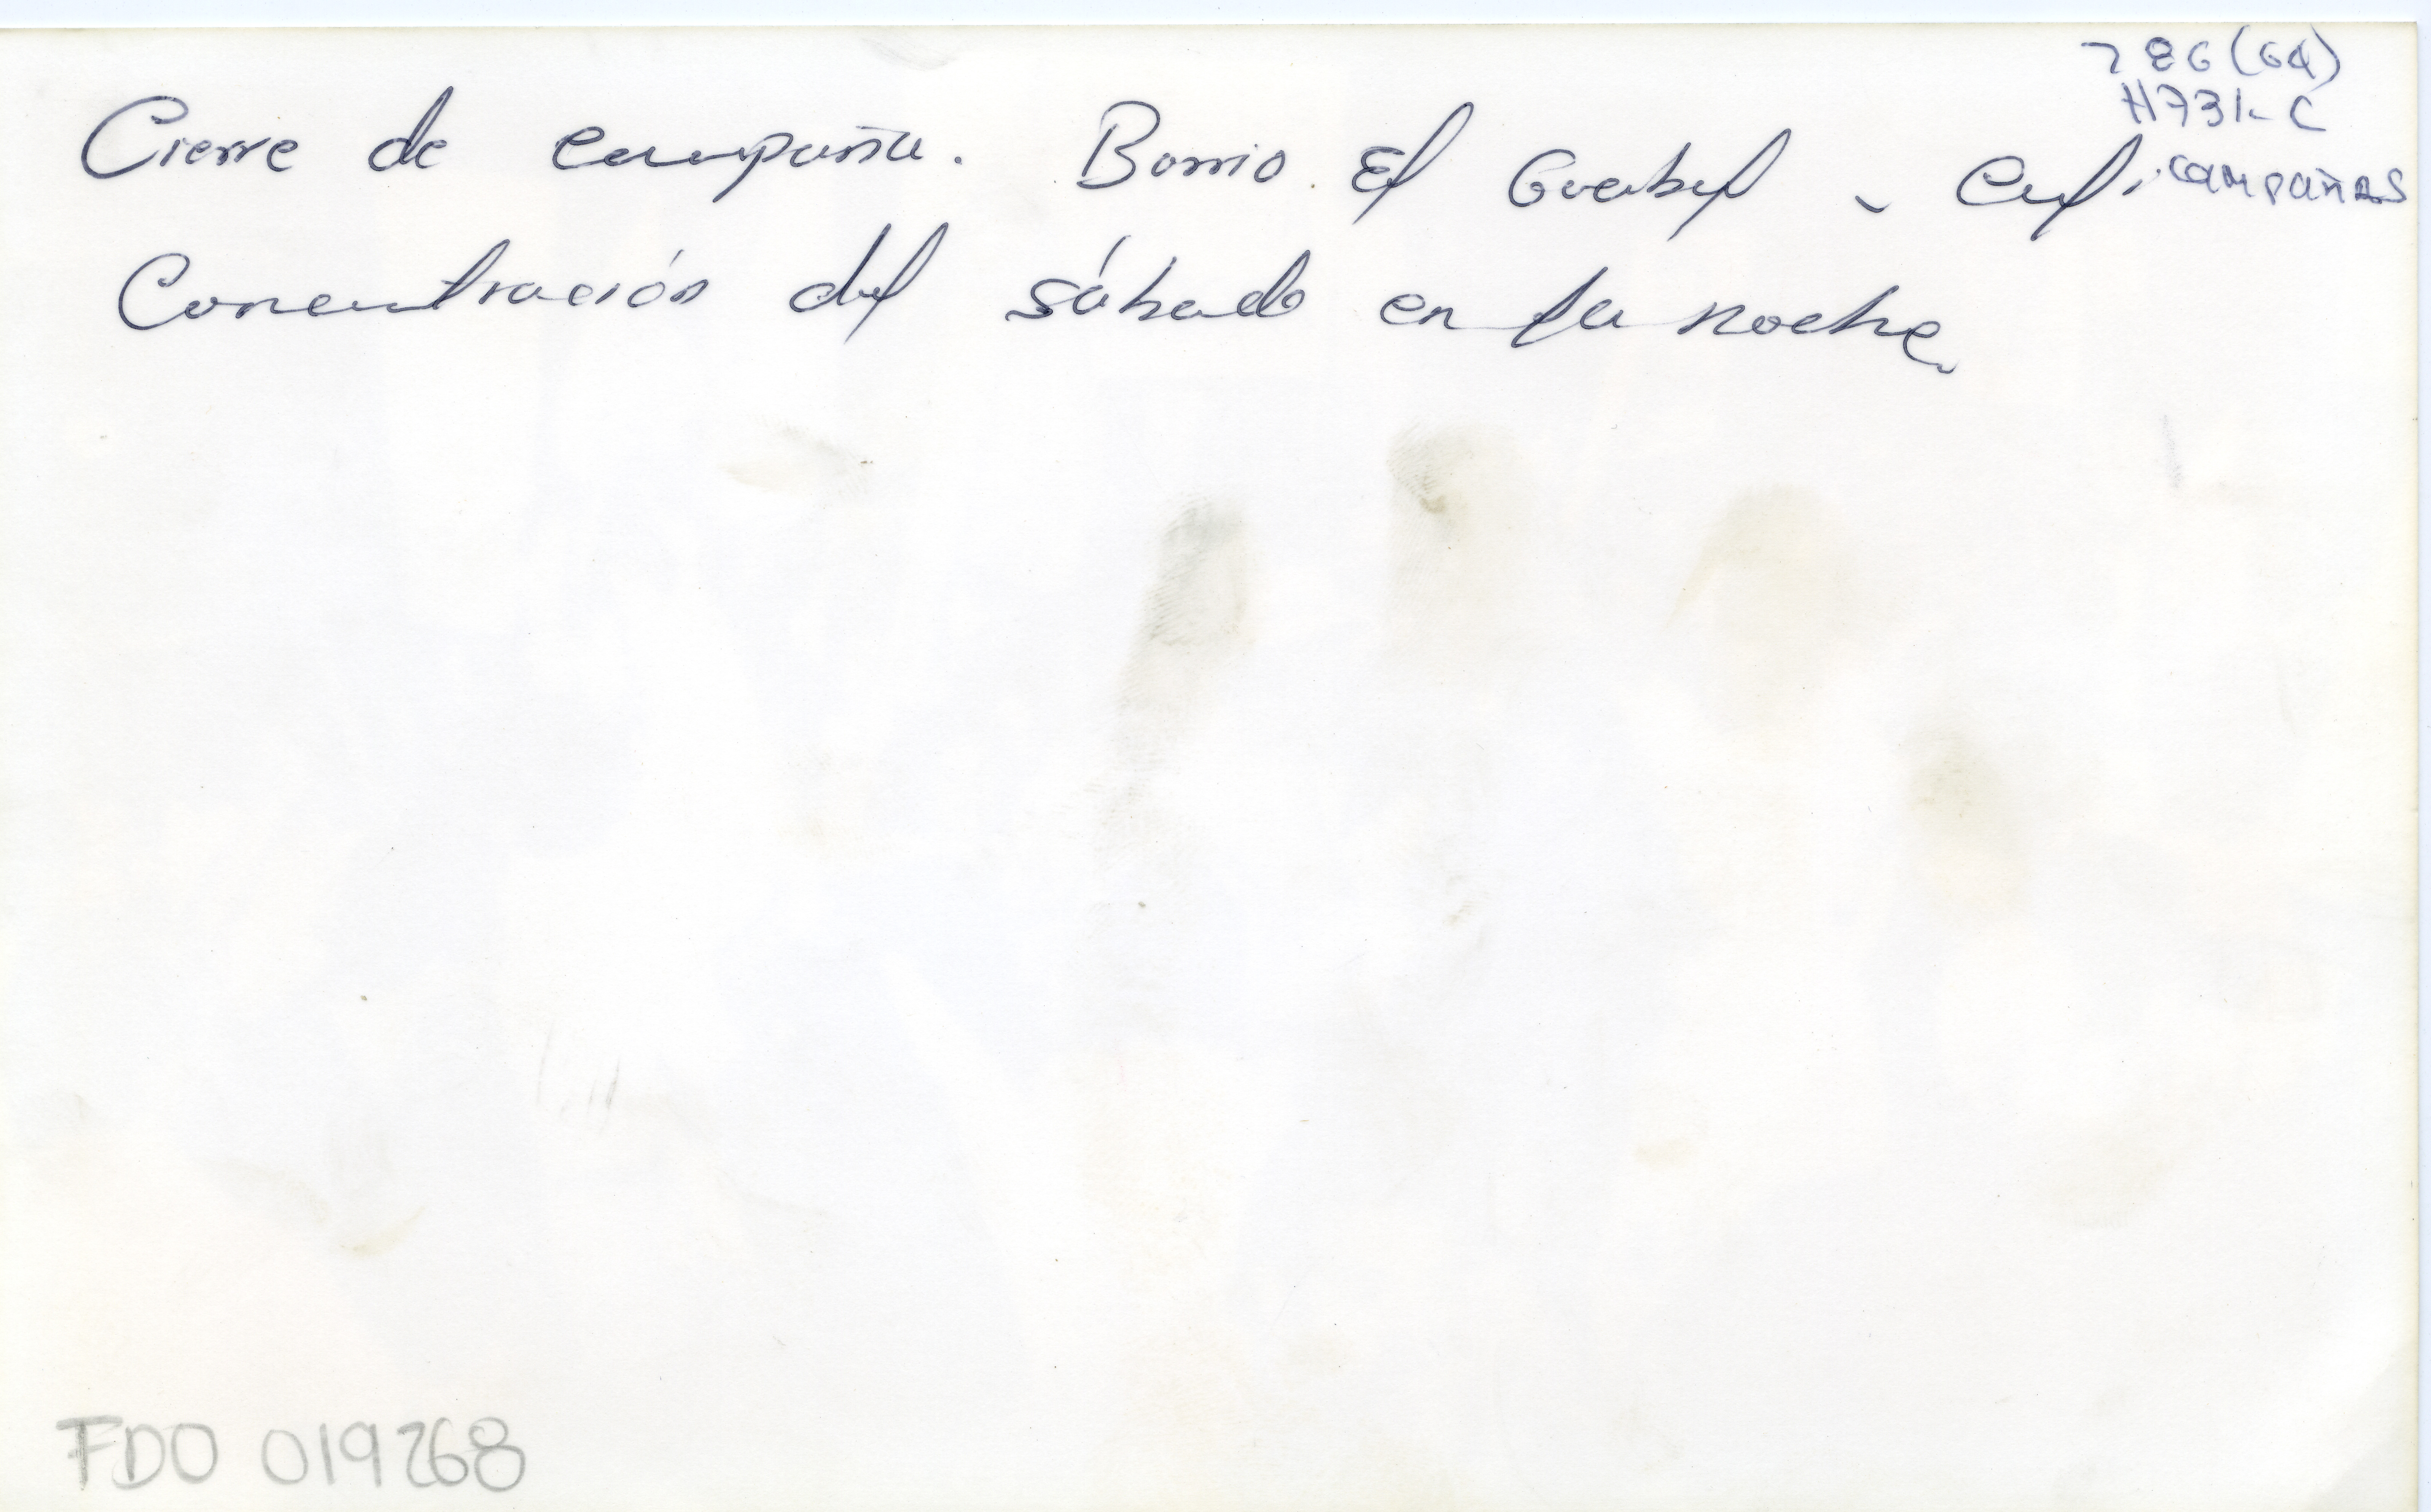 786(64)
H731-C
campañas
Cierre de campaña. Barrio El Guabal - Cali
Concentración del sábado en la noche
FDO 019268